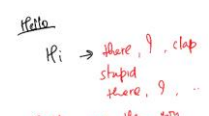 Hello
Hi → there, 9, clap
stupid
there, 9, ..